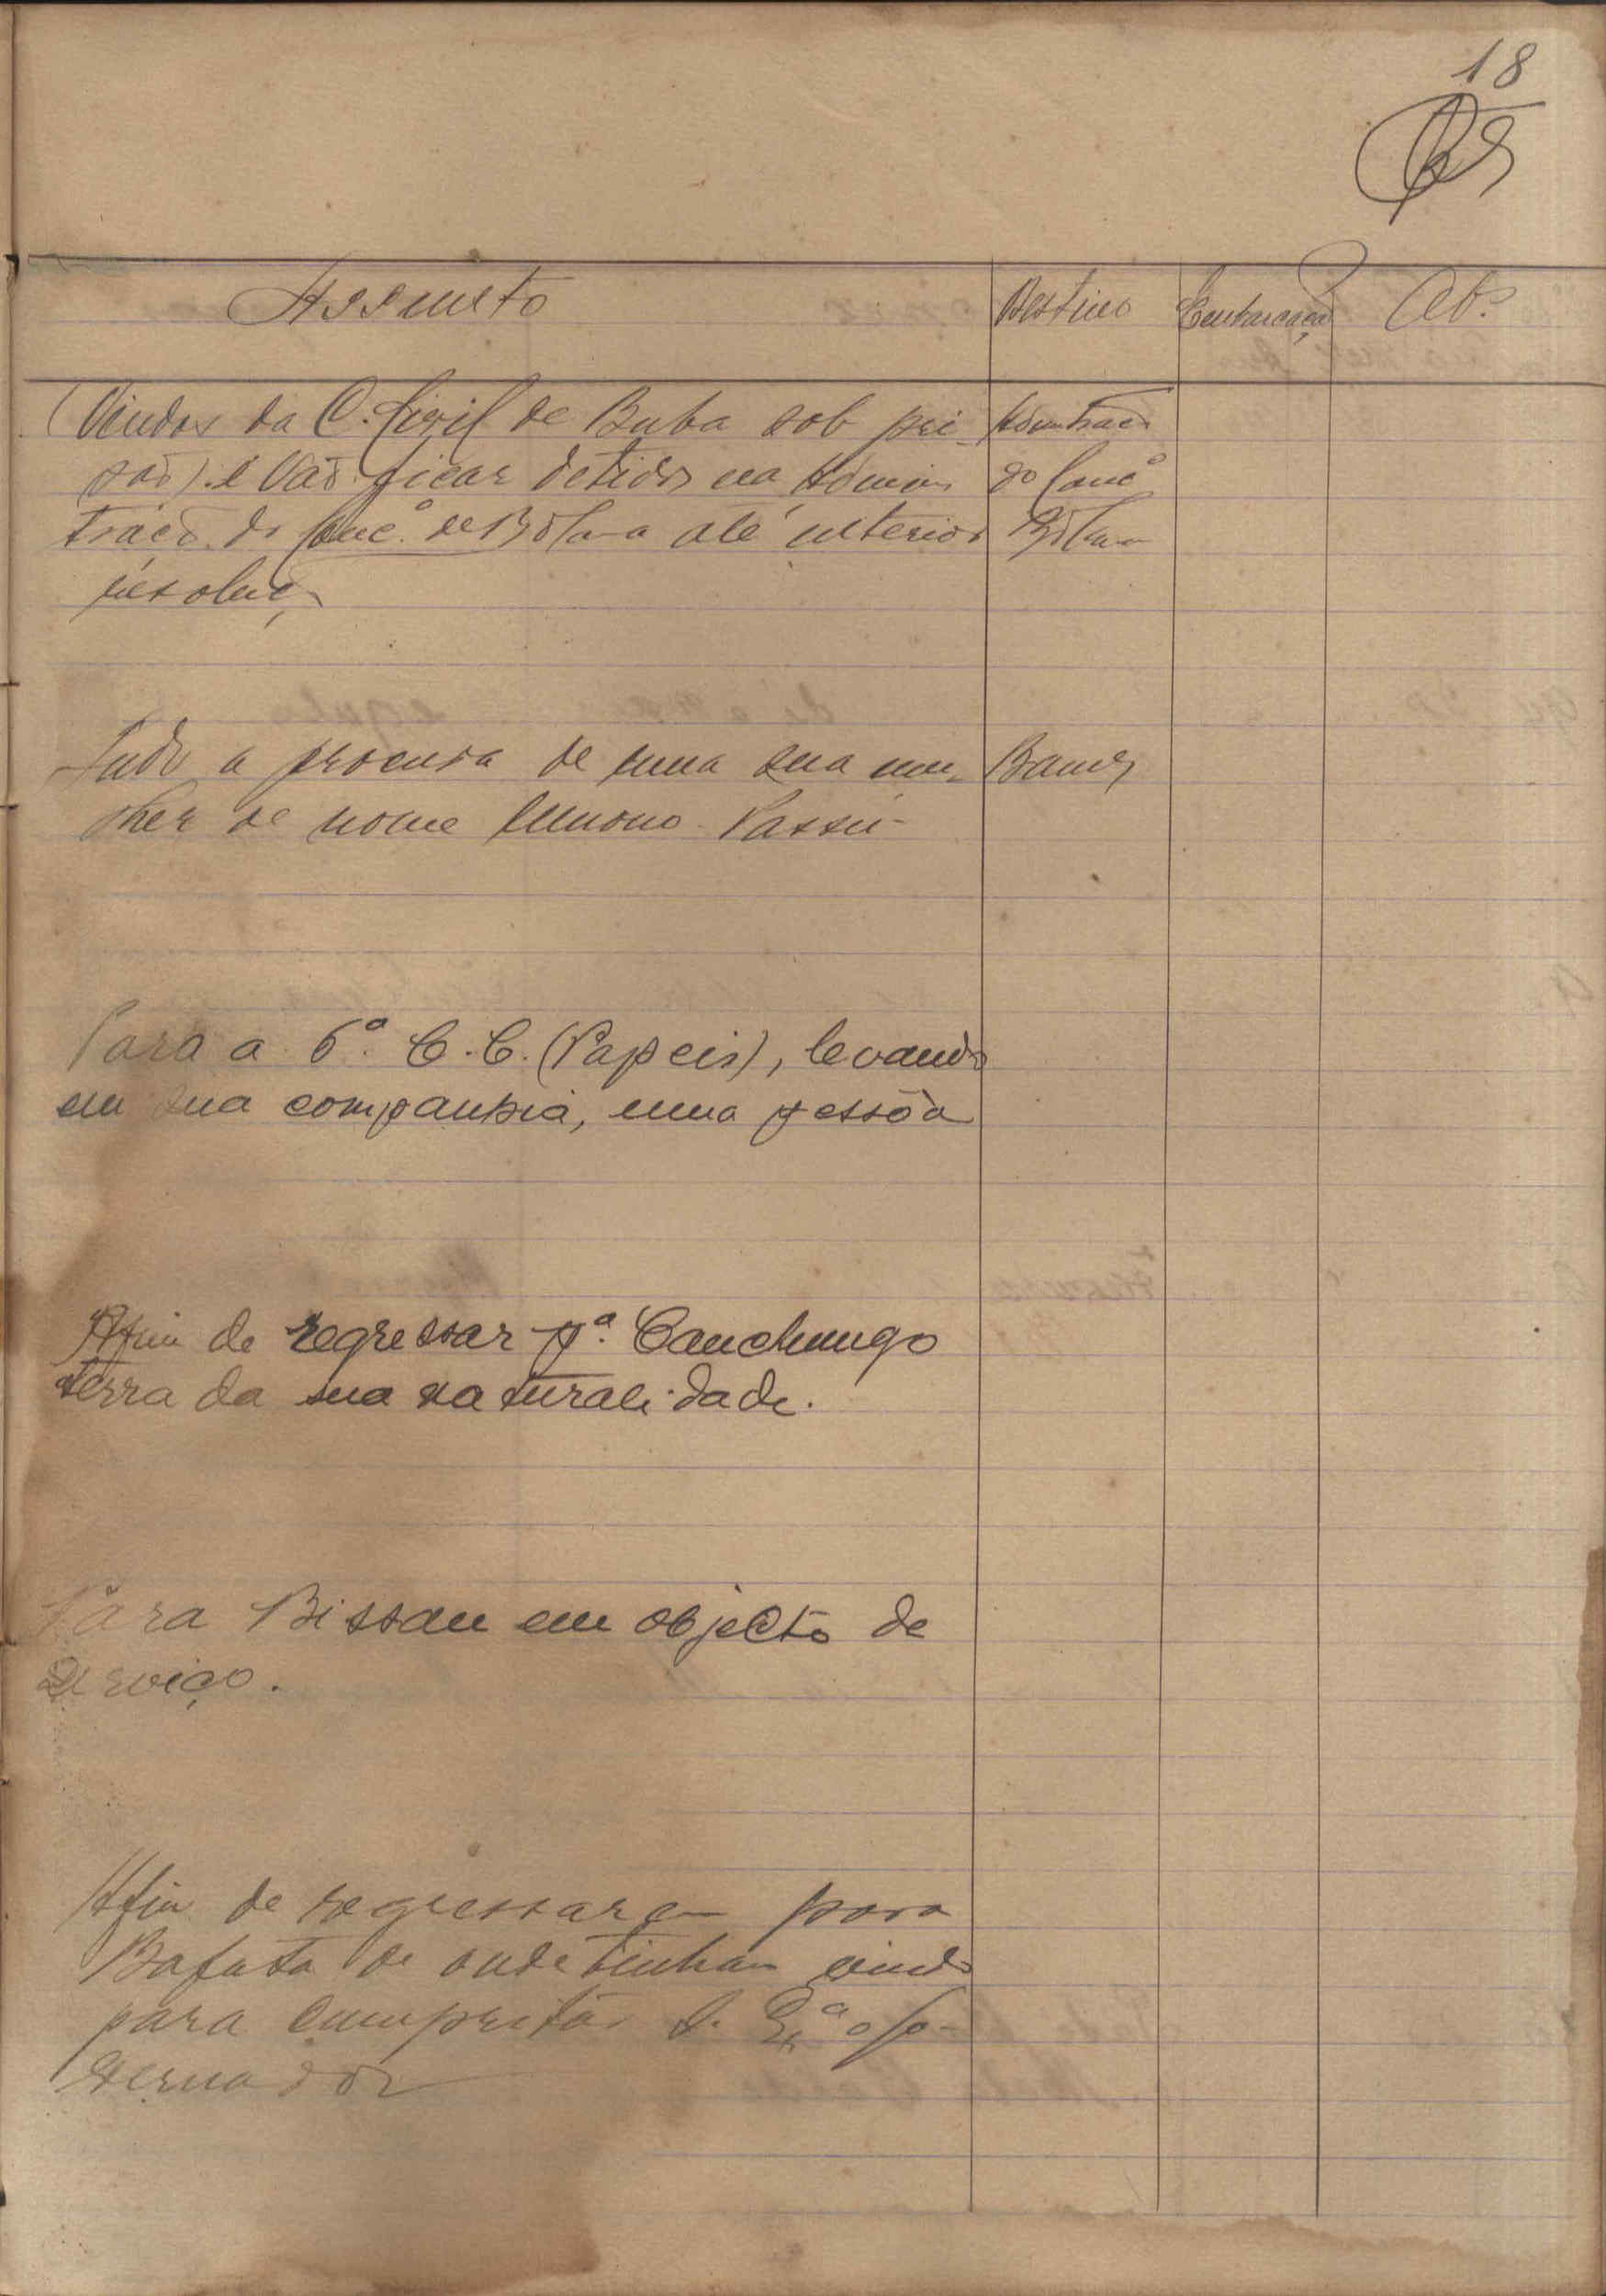 18
Assunto Destino Embarcação Obs
(Vindos da C. Civil de Buba sob pri-
são) e Vão ficar detidos na Adminis
tracã. do Conc.º de Bolama até ulterior
resoluç
Admtracã
do Conc.º
Bolama
Indo a procura de uma sua mu-
lher de nome
Para a 6ª. C. C. (Papeis), levando
em sua companhia, uma pessôa
Afim de regressar pª. Canchungo
terra da sua naturalidade.
Para Bissau em objecto de
Serviço.
Afim de regressarem para
Bafata de onde tinham vindo
para cumpritar S. Exª o Go-
vernador